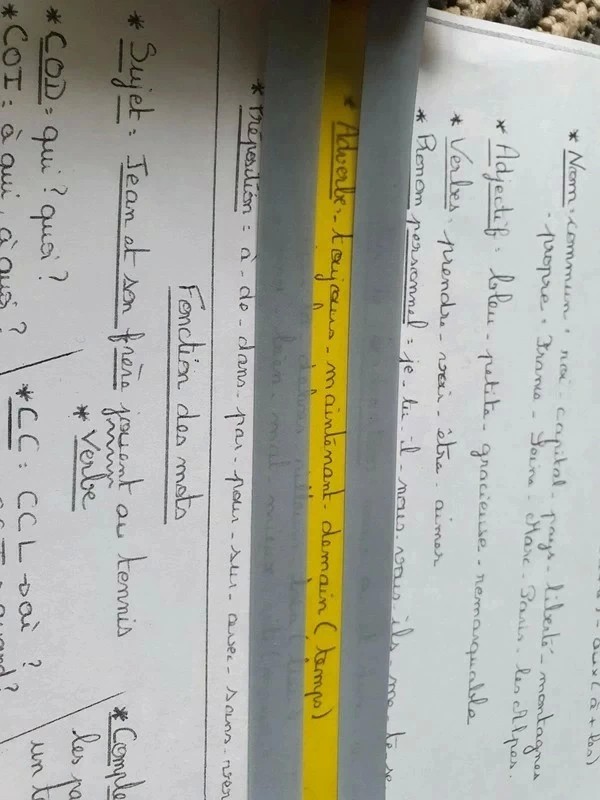 aux (à + les)
* Nom : commun : roi - capital - pays - liberté - montagnes
- propre : France - Seine - Marc - Paris - les Alpes.
* Adjectif = bleu - petite - gracieuse - remarquable
* Verbes : prendre - voir - être - aimer
* Pronom personnel = je - tu - il - nous - vous - ils - me - te - se
* Adverbe - toujours - maintenant - demain (temps)
bien - mal - mieux
* Préposition = à - de - dans - par - pour - sur - avec - sans - ver
Fonction des mots
* Sujet = Jean et son frère jouent au tennis
* Verbe
* Comple
les pa
un t
* COD = qui ? quoi ?
* COI = à qui, à quoi ?
* CC : CCL → où ?
quand ?